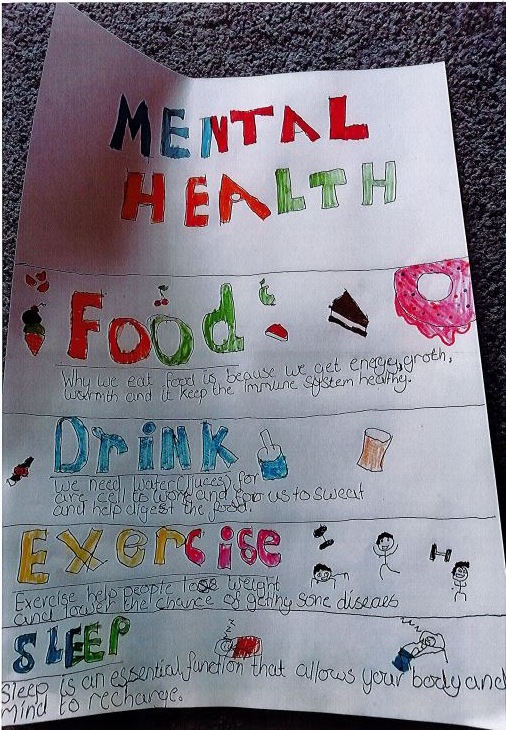 MENTAL
HEALTH
Food
Why we eat food is beause we get energy, groth,
warmth and it keep the immune system healthy.
Drink
we need water (Juces) for
are cell to work and for us to sweat
and help digest the food.
Exercise
Exercise help people lose weight
and lower the chance of some diseaes
SLEEP
Sleep is an essential function that allows your body and
mind to recharge.